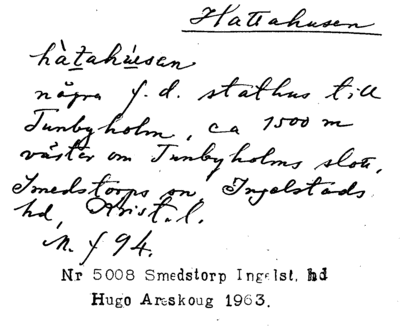 Hattahusen
hàtahúsan
några f.d. stathus till
Tunbyholm, ca 1500 m
väster om Tunbyholms slott,
Smedstorps sn, Ingelstads
hd, Krist. l.
M. f 94.
Nr 5008 Smedstorp Ingelst. hd
Hugo Areskoug 1963.